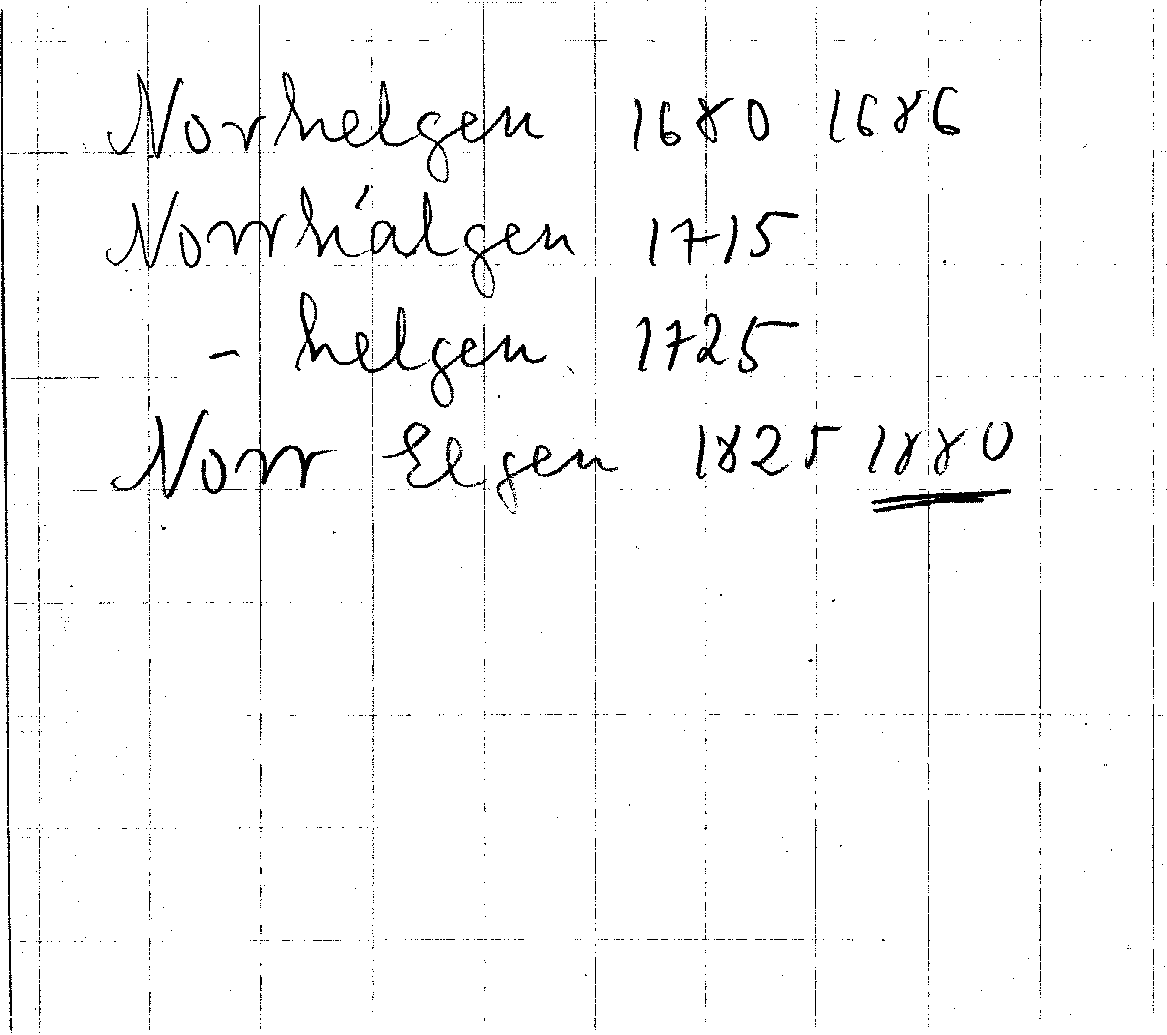 Norhelgen 1680 1686
Norrhälgen 1715
- helgen 1725
Norr Elgen 1825 1880